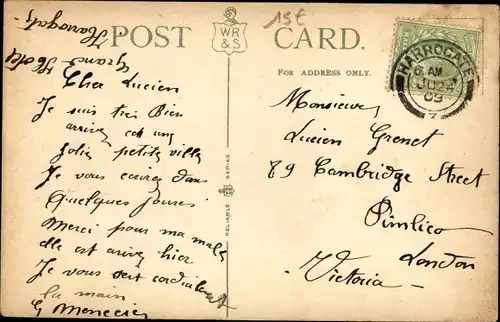 Harrogate
Grand Hotel
Cher Lucien
Je suis très Bien
arrivez est une
Jolie petite ville
Je vous écrirez dans
Quelques Jours
Merci pour ma malle
elle est arivez hier
Je vous sert cordialement
la main
G Menecier
POST CARD.
WR
&S
1st
FOR ADDRESS ONLY.
Monsieur
Lucien Grenet
89 Cambridge Street
Pimlico
London
- Victoria -
RELIABLE WR&S SERIES
HARROGATE
6 AM
JU 24
09